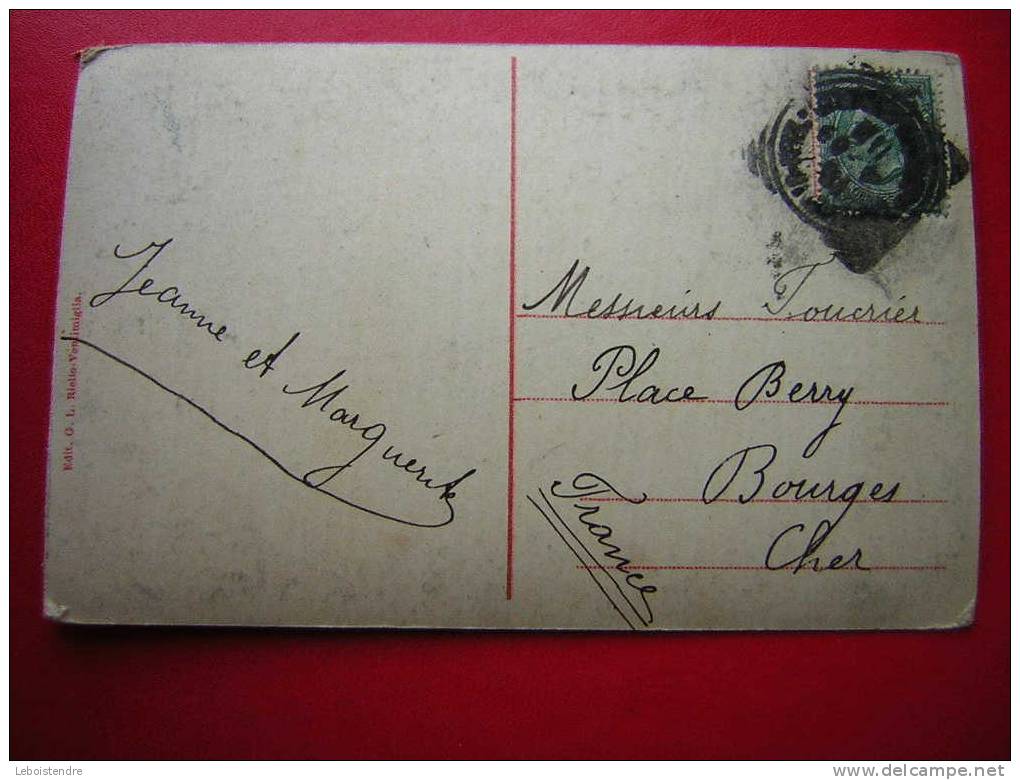 Jeanne et Marguerite
Edit. G. L. Rialto-Ventimiglia.
Messieurs Foucrier
Place Berry
Bourges
Cher
France
Leboistendre
www.delcampe.net